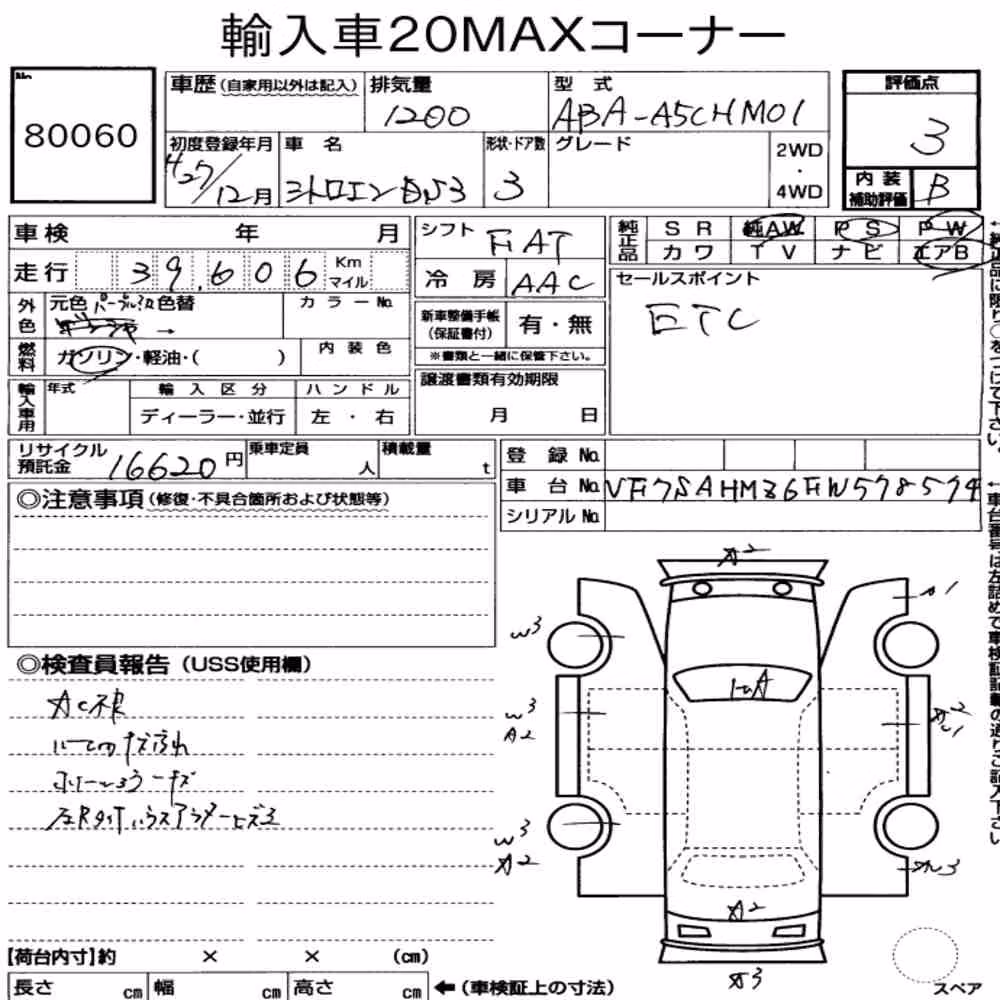 輸入車20MAXコーナー
No.
80060
車歴（自家用以外は記入）
排気量
1200
型 式
ABA-A5CHM01
評価点
3
初度登録年月
H27/12月
車 名
シトロエンDS3
形状・ドア数
3
グレード
2WD
・
4WD
内 装
補助評価
B
車 検 年 月
シフト
FAT
純正品
S R 純AW P S P W
カ ワ T V ナ ビ エアB
←純正品に限り○をつけて下さい。
走 行 39,606 Km マイル
冷 房 AAC
セールスポイント
ETC
外色
元色 色替
→
カラーNo.
新車整備手帳
（保証書付）
有・無
※書類と一緒に保管下さい。
燃料
ガソリン・軽油・（ ）
内 装 色
輸入車用
年式
輸 入 区 分
ハ ン ド ル
ディーラー・並行
左 ・ 右
譲渡書類有効期限
月 日
リサイクル
預託金
16620円
乗車定員
人
積載量
t
登 録 No.
車 台 No. VF7SAHMZ6FW578574
シリアル No.
←車台番号は左詰めで車検証記載の通りご記入下さい
◎注意事項（修復・不具合箇所および状態等）
◎検査員報告（USS使用欄）
AC不良
A2
A1
W3
W3
A2
W3
A2
A2
A3
【荷台内寸】約 × × （cm）
長さ cm
幅 cm
高さ cm
←（車検証上の寸法）
スペア